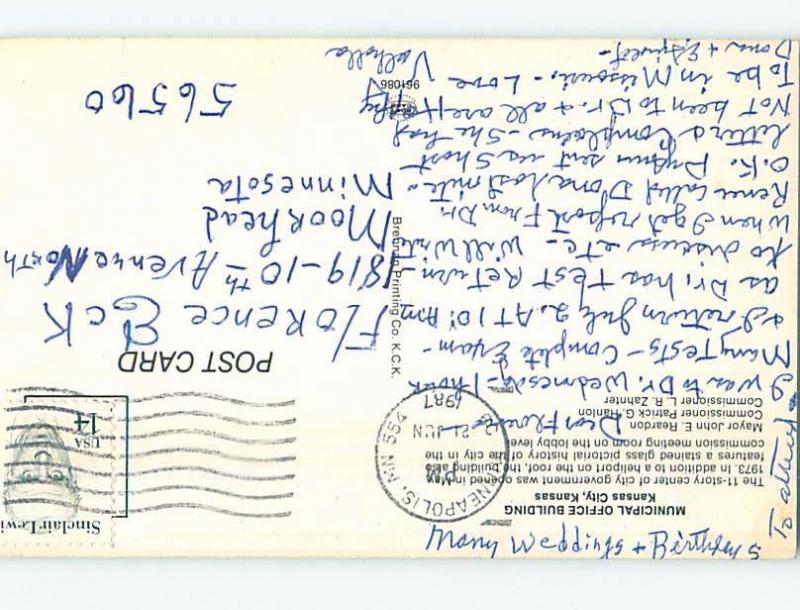 MUNICIPAL OFFICE BUILDING
Kansas City, Kansas
The 11-story center of city government was opened in May
1973. In addition to a heliport on the roof, the building also
features a stained glass pictorial history of the city in the
commission meeting room on the lobby level.
Mayor John E. Reardon
Commissioner Patrick G. Hanlon
Commissioner R. L. Zahnter
Dear Florence
I was to Dr. Wednesda - 1 hour
Many Tests - Complete Exam -
& I return July 2. AT 10: AM
as Dr. has TEST Return -
to discuss etc - Will Write
when I get report From Dr.
Renee called Dona last nite -
O.K. sent us Short
letter & Complains - She has
Not been to Dr. & all are
To be in Missouri. - Love
Valholla
Dona +
POST CARD
Florence Eck
1819 - 10th Avenue North
Moorhead
Minnesota
56560
Brennan Printing Co. K.C.K.
961086
NEAPOLIS, MN 554
PM
21 JUN
1987
USA
14
Sinclair Lewi
Many Weddings + Birthdays
To attend